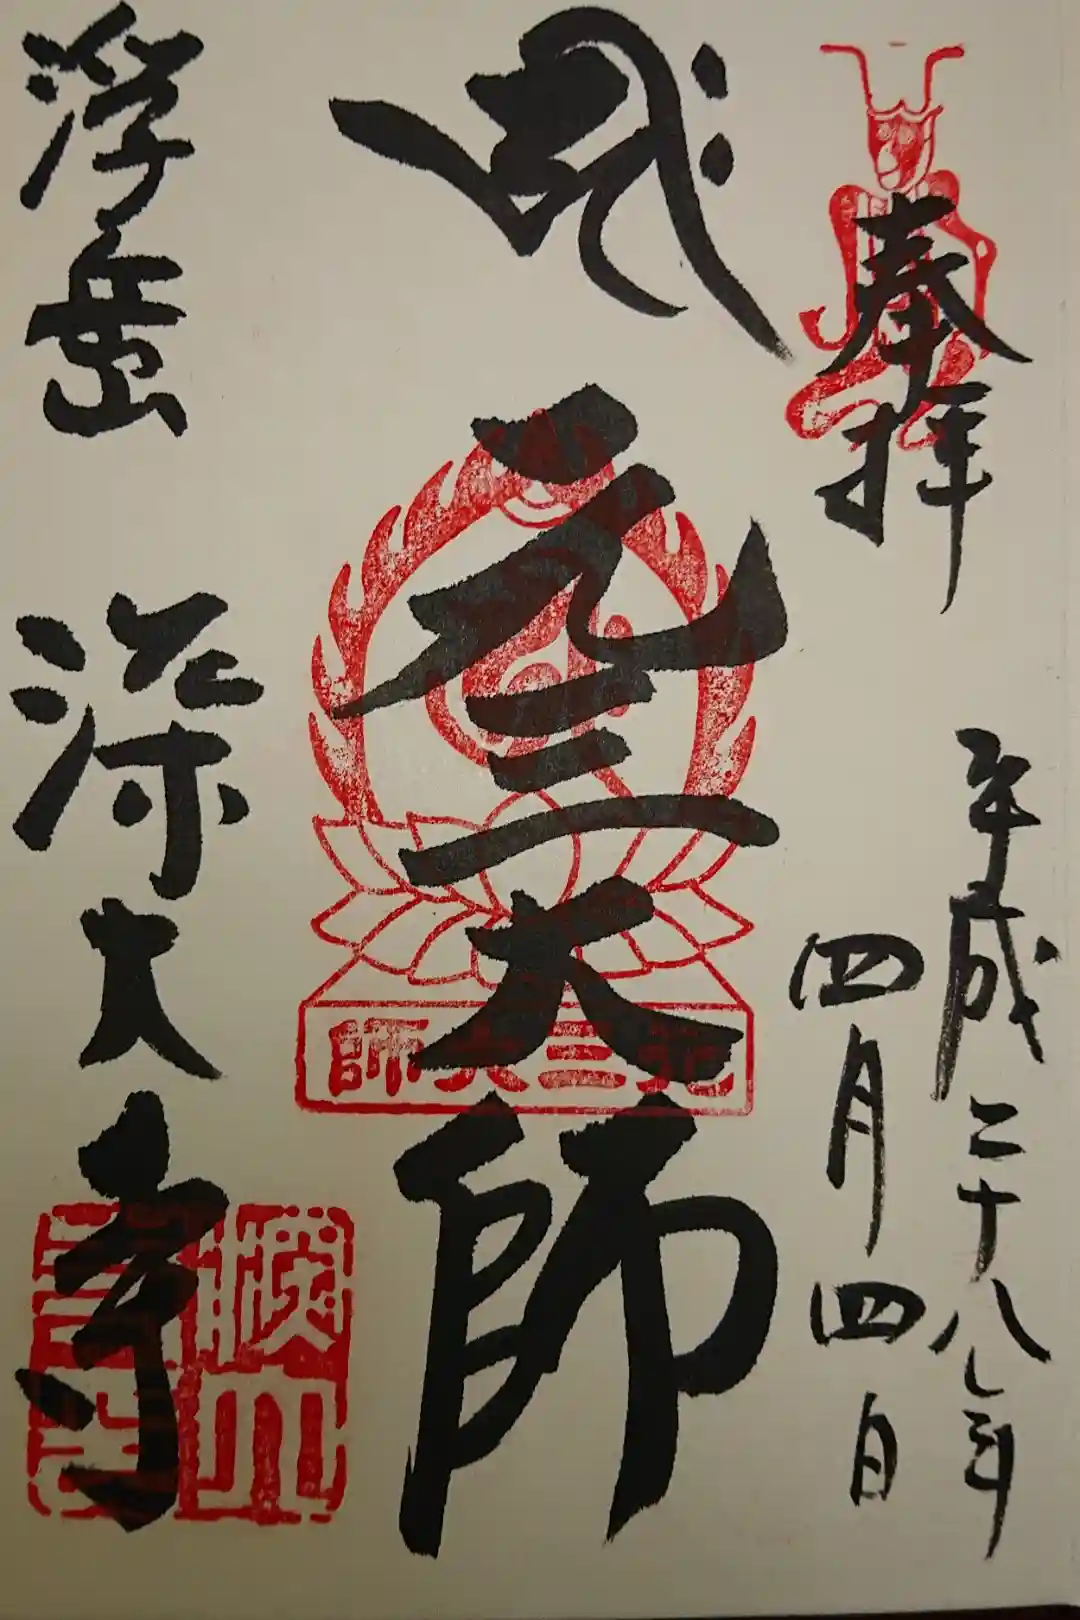 奉拝
平成二十八年
四月四日
元三大師
元三大師
浮岳
深大寺